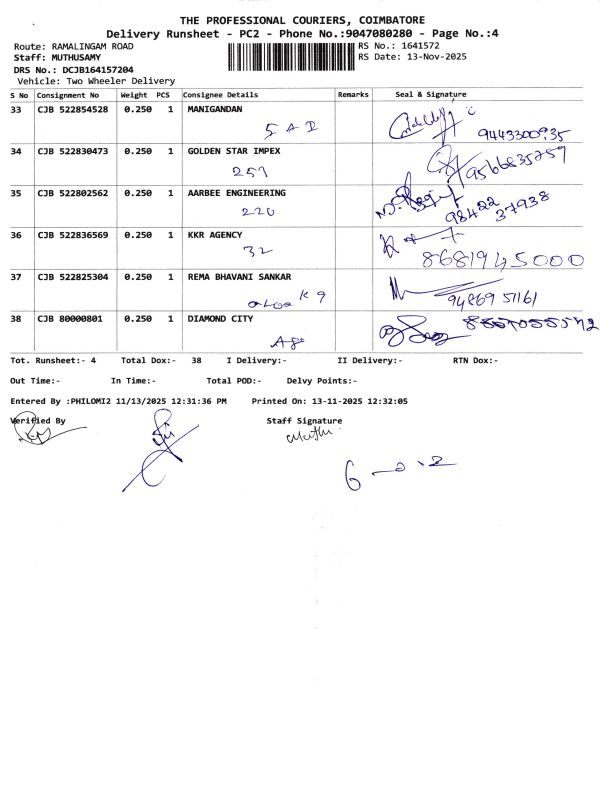 THE PROFESSIONAL COURIERS, COIMBATORE
Delivery Runsheet - PC2 - Phone No.:9047080280 - Page No.:4
Route: RAMALINGAM ROAD RS No.: 1641572
Staff: MUTHUSAMY RS Date: 13-Nov-2025
DRS No.: DCJB164157204
Vehicle: Two Wheeler Delivery
S No Consignment No Weight PCS Consignee Details Remarks Seal & Signature
33 CJB 522854528 0.250 1 MANIGANDAN
9443300935
34 CJB 522830473 0.250 1 GOLDEN STAR IMPEX
257 9566835759
35 CJB 522802562 0.250 1 AARBEE ENGINEERING
220 98422 37938
36 CJB 522836569 0.250 1 KKR AGENCY
32 8681945000
37 CJB 522825304 0.250 1 REMA BHAVANI SANKAR
94869 51161
38 CJB 80000801 0.250 1 DIAMOND CITY
Tot. Runsheet:- 4 Total Dox:- 38 I Delivery:- II Delivery:- RTN Dox:-
Out Time:- In Time:- Total POD:- Delvy Points:-
Entered By :PHILOMI2 11/13/2025 12:31:36 PM Printed On: 13-11-2025 12:32:05
Verified By Staff Signature